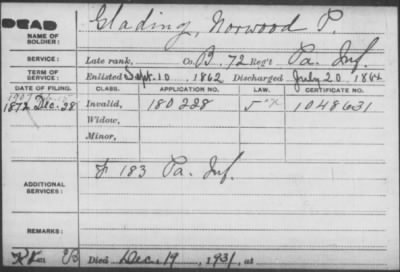 DEAD
NAME OF SOLDIER: Glading, Norwood P.
SERVICE: Late rank, Co. B, 72 Reg't Pa. Inf.
TERM OF SERVICE: Enlisted Sept. 10, 1862 Discharged July 20, 1864
DATE OF FILING. CLASS. APPLICATION NO. LAW. CERTIFICATE NO.
1872 Dec. 28 Invalid, 180228 1048631
Widow,
Minor,
ADDITIONAL SERVICES: 183 Pa. Inf.
REMARKS:
Died Dec. 19, 1931, at